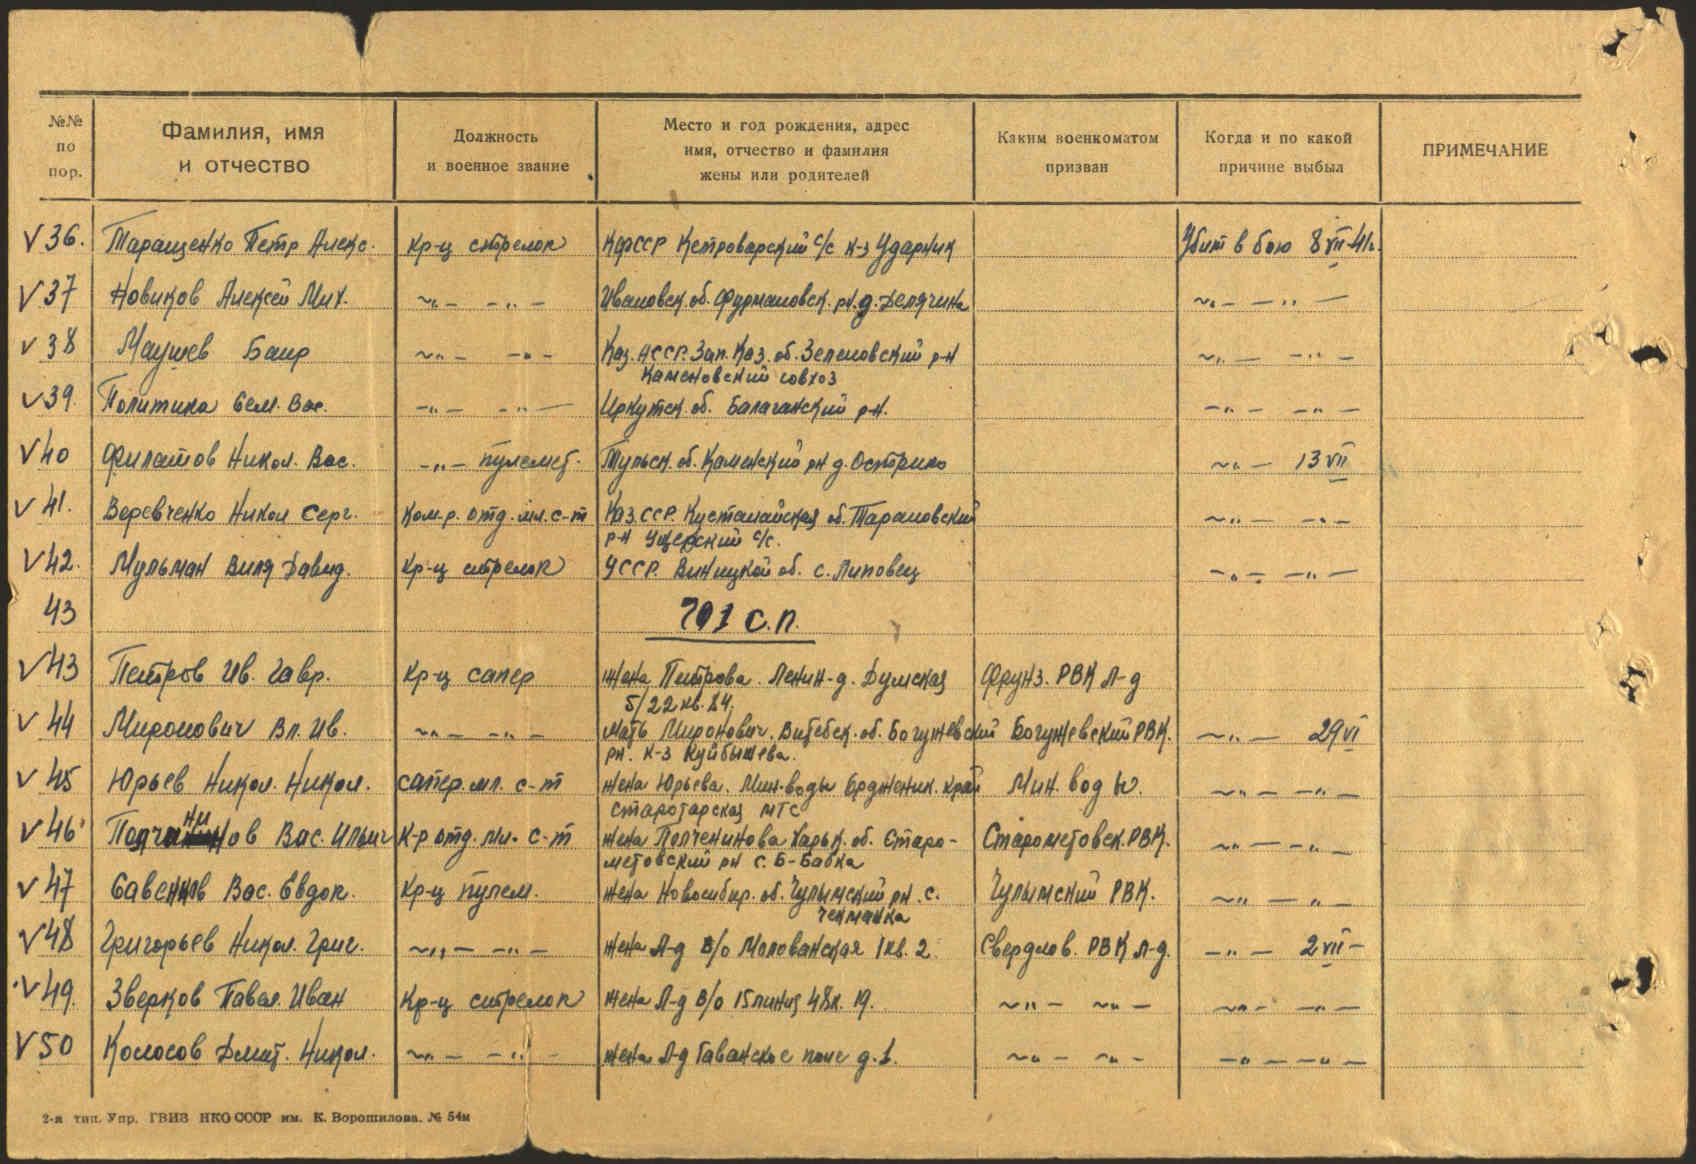 №№ по пор.
Фамилия, имя и отчество
Должность и военное звание
Место и год рождения, адрес имя, отчество и фамилия жены или родителей
Каким военкоматом призван
Когда и по какой причине выбыл
ПРИМЕЧАНИЕ
V 36. Таращенко Петр Алекс. Кр-ц стрелок КФССР с/с к-з Ударник Убит в бою 8 VII-41г.
V 37 Новиков Алексей Мих. ~"- -"- Ивановск. об. Фурмановск. рн. д. Делячина ~"- -"-
V 38 Маушев Баир ~"- -"- Каз. АССР. Зап. Каз. об. Зеленовский р-н
Каменовский совхоз ~"- -"-
V 39. Политика Сем. Вас. -"- -"- Иркутск. об. Балаганский р-н. -"- -"-
V 40 Филатов Никол. Вас. -"- пулемет. Тульск. об. Каменский рн д. ~"- 13 VII
V 41. Веревченко Никол Серг. Ком-р. отд. мл. с-т Каз.ССР. Кустанайская об. Тарановский
р-н с/с. ~"- -"-
V 42. Мульман Виля Давид. Кр-ц стрелок УССР. Виницкой об. с. Липовец -"- -"-
43 701 с.п.
V 43 Петров Ив. Гавр. Кр-ц сапер жена Петрова. Ленин-д. Думская Фрунз. РВК Л-д
5/22 кв. 84.
V 44 Миронович Вл. Ив. ~"- -"- мать Миронович. Витебск. об. Богушевский Богушевский РВК. ~"- 29 VI
рн. к-з Куйбышева.
V 45 Юрьев Никол. Никол. сапер. мл. с-т жена Юрьева. Мин-воды Орджоник. край Мин. вод ы. ~"- -"-
МТС
V 46 Вас. Ильич К-р отд. мл. с-т жена Полченинова Харьк. об. Старо-
метовский рн с. Б-Бабка Старометовск. РВК. ~"- -"-
V 47 Савенков Вас. Евдок. Кр-ц пулем. жена Новосибир. об. Чулымский рн. с. Чулымский РВК. ~"- -"-
V 48 Григорьев Никол. Григ. ~"- -"- жена Л-д В/о 1 кв. 2. Свердлов. РВК Л-д. -"- 2 VII-
V 49. Зверков Павел. Иван Кр-ц стрелок жена Л-д В/о 15 линия 48 к. 19. ~"- ~"- ~"- -"-
V 50 Колосов Дмит. Никол. ~"- -"- жена Л-д Гаванское поле д. 1. ~"- ~"- -"- -"-
2-я тип. Упр. ГВИЗ НКО СССР им. К. Ворошилова. № 54м